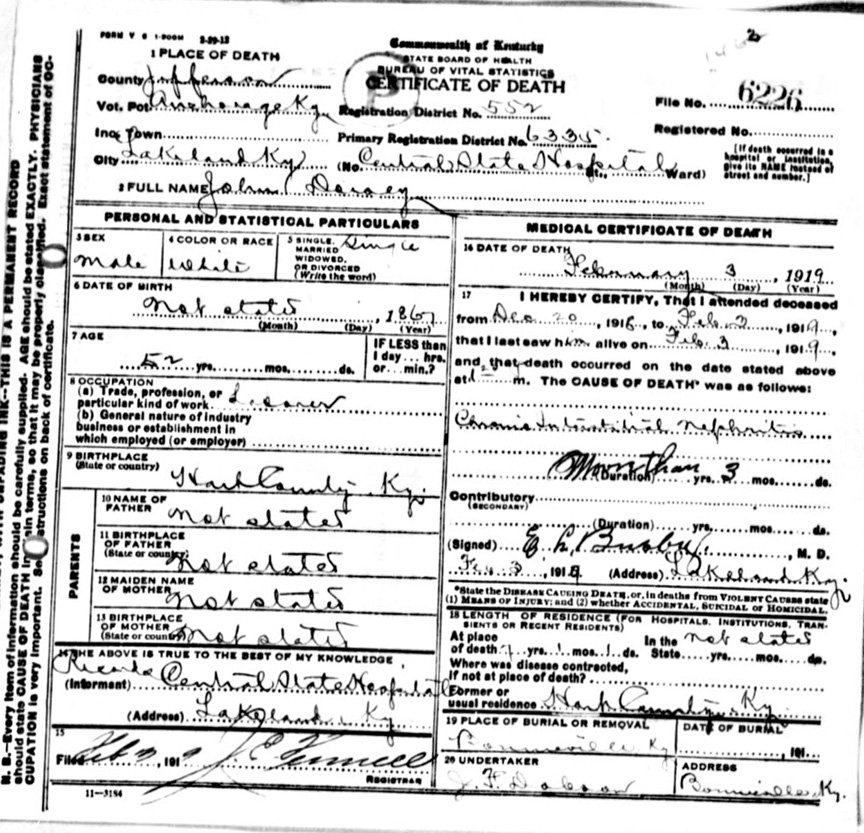 FORM V S 1-500M 2-29-12
Commonwealth of Kentucky
STATE BOARD OF HEALTH
BUREAU OF VITAL STATISTICS
CERTIFICATE OF DEATH
1 PLACE OF DEATH
County Jefferson
Vot. Pct. Anchorage Ky.
Registration District No. 552
File No. 6226
Inc. Town
Primary Registration District No. 6335
Registered No.
City Lakeland Ky (No. Central State Hospital St., Ward)
[If death occurred in a hospital or institution, give its NAME instead of street and number.]
2 FULL NAME John Dorsey
PERSONAL AND STATISTICAL PARTICULARS
3 SEX Male
4 COLOR OR RACE White
5 SINGLE, MARRIED WIDOWED, OR DIVORCED (Write the word) Single
6 DATE OF BIRTH
Not stated, 1867
(Month) (Day) (Year)
7 AGE
52 yrs. mos. ds.
IF LESS than 1 day... hrs. or... min.?
8 OCCUPATION
(a) Trade, profession, or particular kind of work
(b) General nature of industry business or establishment in which employed (or employer)
9 BIRTHPLACE
(State or country) Hart County Ky.
PARENTS
10 NAME OF FATHER Not stated
11 BIRTHPLACE OF FATHER (State or country) Not stated
12 MAIDEN NAME OF MOTHER Not stated
13 BIRTHPLACE OF MOTHER (State or country) Not stated
14 THE ABOVE IS TRUE TO THE BEST OF MY KNOWLEDGE
Records
(Informant) Central State Hospital
(Address) Lakeland Ky
15
Filed Feb 191
REGISTRAR
11—3184
MEDICAL CERTIFICATE OF DEATH
16 DATE OF DEATH
February 3, 1919
(Month) (Day) (Year)
17 I HEREBY CERTIFY, That I attended deceased
from Dec 20, 1918, to Feb. 3, 1919,
that I last saw him alive on Feb. 3, 1919,
and that death occurred on the date stated above
at m. The CAUSE OF DEATH* was as follows:
Chronic Interstitial Nephritis
More than 3
(Duration) yrs. mos. ds.
Contributory
(SECONDARY)
(Duration) yrs. mos. ds.
(Signed) E. L. Busby, M. D.
Feb 3, 1919 (Address) Lakeland Ky.
*State the DISEASE CAUSING DEATH, or, in deaths from VIOLENT CAUSES state (1) MEANS OF INJURY; and (2) whether ACCIDENTAL, SUICIDAL OR HOMICIDAL.
18 LENGTH OF RESIDENCE (FOR HOSPITALS, INSTITUTIONS, TRANSIENTS OR RECENT RESIDENTS)
At place of death yrs. 1 mos. 1 ds. In the State Not stated yrs. mos. ds.
Where was disease contracted, if not at place of death?
Former or usual residence Hart County Ky.
19 PLACE OF BURIAL OR REMOVAL
Bonnieville Ky
DATE OF BURIAL
, 191
20 UNDERTAKER
J. F. Dobson
ADDRESS
Bonnieville Ky.
N. B.—Every item of information should be carefully supplied. AGE should be stated EXACTLY. PHYSICIANS
should state CAUSE OF DEATH in plain terms, so that it may be properly classified. Exact statement of OC-
CUPATION is very important. See instructions on back of certificate.
UNFADING INK—THIS IS A PERMANENT RECORD